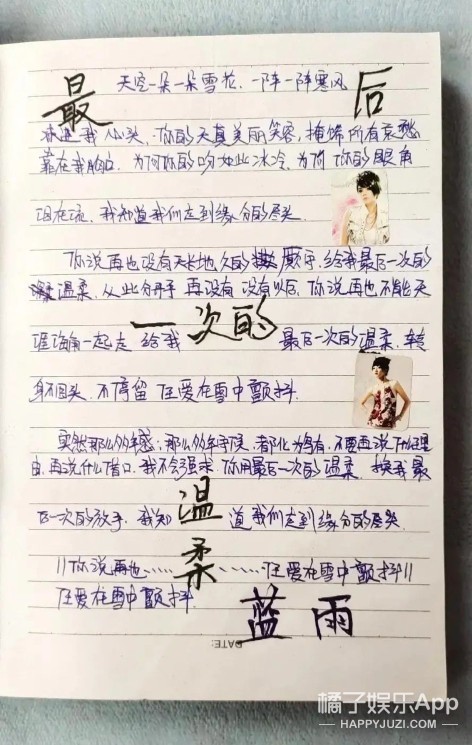 最
天空一朵一朵雪花、一阵一阵寒风
后
冰进我心头、你的天真美丽笑容,掩饰所有哀愁
靠在我胸口,为何你的吻如此冰冷,为何你的眼角
泪在流,我知道我们走到缘分的尽头
你说再也没有天长地久的厮守,给我最后一次的
温柔,从此分手再没有没有以后,你说再也不能天
涯海角一起走 给我
一次的
最后一次的温柔,转
身不回头,不停留 任爱在雪中颤抖.
突然那么的年感,那么的年守候,都化为乌有,不要再说什么理
由,再说什么借口,我不会强求,你用最后一次的温柔,换我最
后一次的放手,我知
温
道我们走到缘分的尽头
‖你说再也……
柔
……任爱在雪中颤抖‖
任爱在雪中颤抖.
蓝雨
DATE:
橘子娱乐App
—HAPPYJUZI.COM—